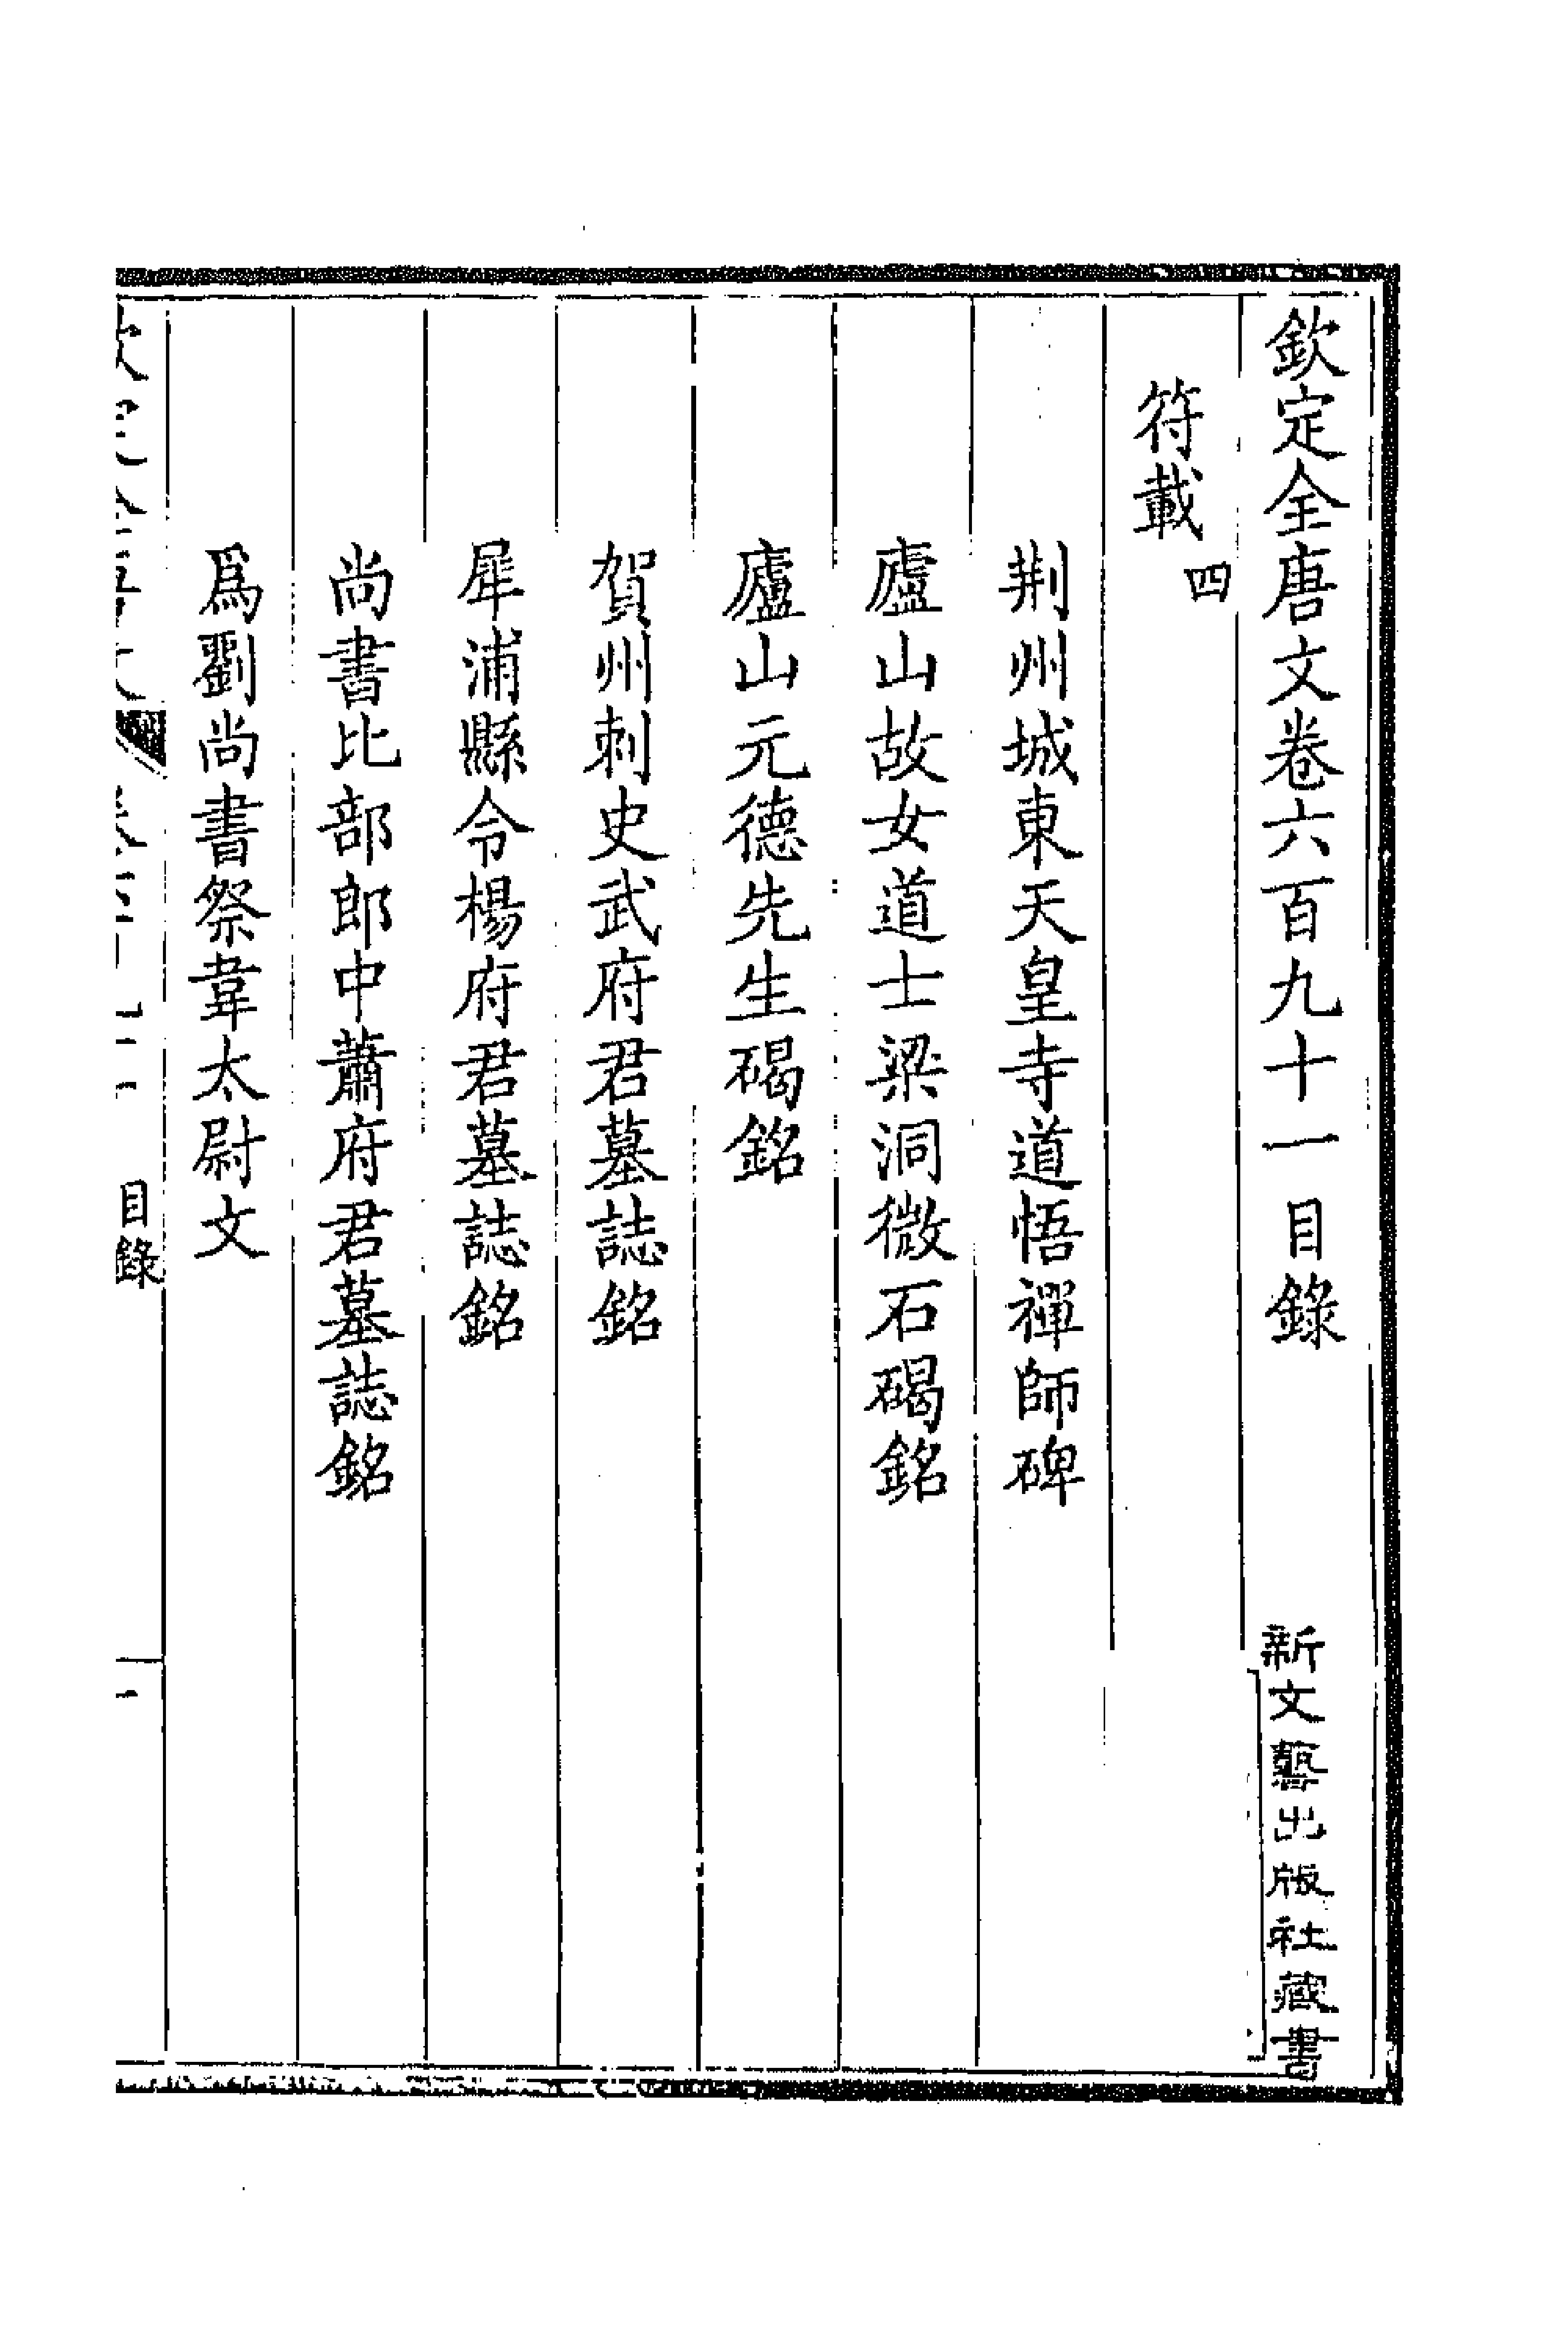 欽定全唐文卷六百九十一目錄
新文藝出版社藏書
符載 四
荆州城東天皇寺道悟禪師碑
廬山故女道士梁洞微石碣銘
廬山元德先生碣銘
賀州刺史武府君墓誌銘
犀浦縣令楊府君墓誌銘
尚書比部郎中蕭府君墓誌銘
爲劉尚書祭韋太尉文
目錄